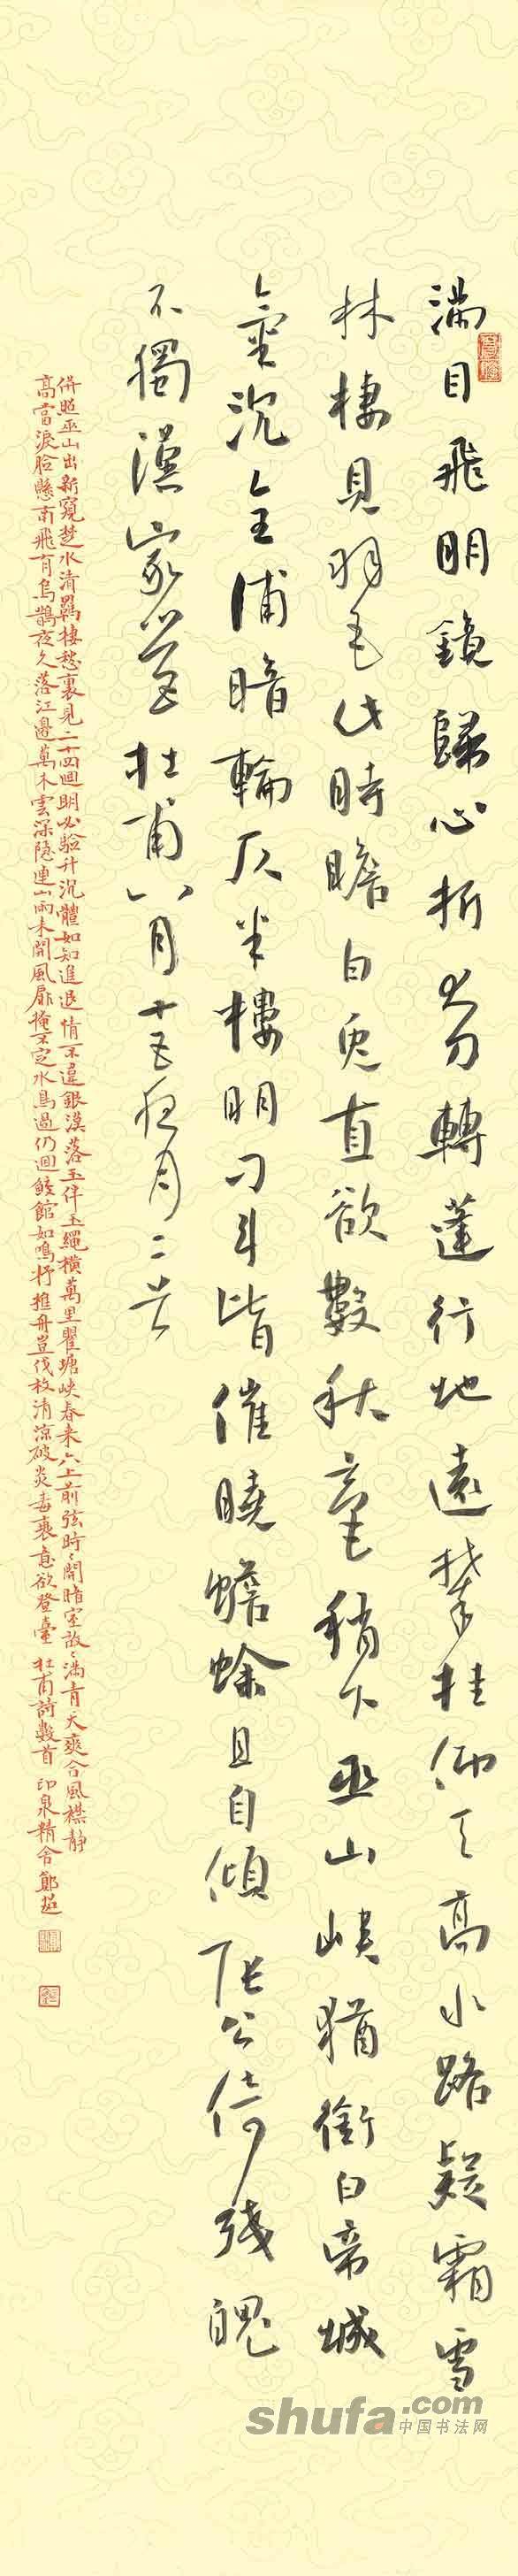 満目飛明鏡歸心折大刀轉蓬行地遠攀桂仰天高水路疑霜雪
林棲見羽毛此時瞻白兔直欲數秋毫稍下巫山峽猶銜白帝城
氣沉全浦暗輪仄半樓明刁斗皆催曉蟾蜍且自傾張公倚殘魄
不獨漢家營杜甫八月十五夜月二首
併照巫山出新窺楚水清羈棲愁裏見二十四迴明必驗升沉體如知進退情不違銀漢落亦伴玉繩橫萬里瞿塘峽春來六上弦時時開暗室故故滿青天爽合風襟靜
高當淚臉懸南飛有烏鵲夜久落江邊萬木雲深隱連山雨未開風扉掩不定水鳥過仍迴鮫館如鳴杼樵舟豈伐枚清涼破炎毒衰意欲登臺 杜甫詩數首 印泉精舍鄭
shufa.com
中国书法网